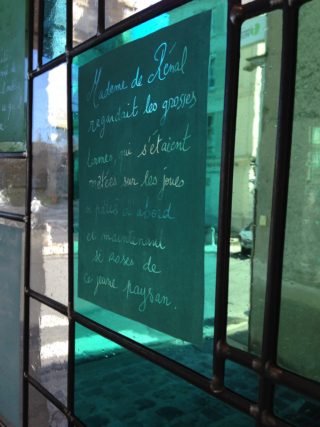 Madame de Rênal
regardait les grosses
larmes, qui s'étaient
arrêtées sur les joues
si pâles d'abord
et maintenant
si roses de
ce jeune paysan.